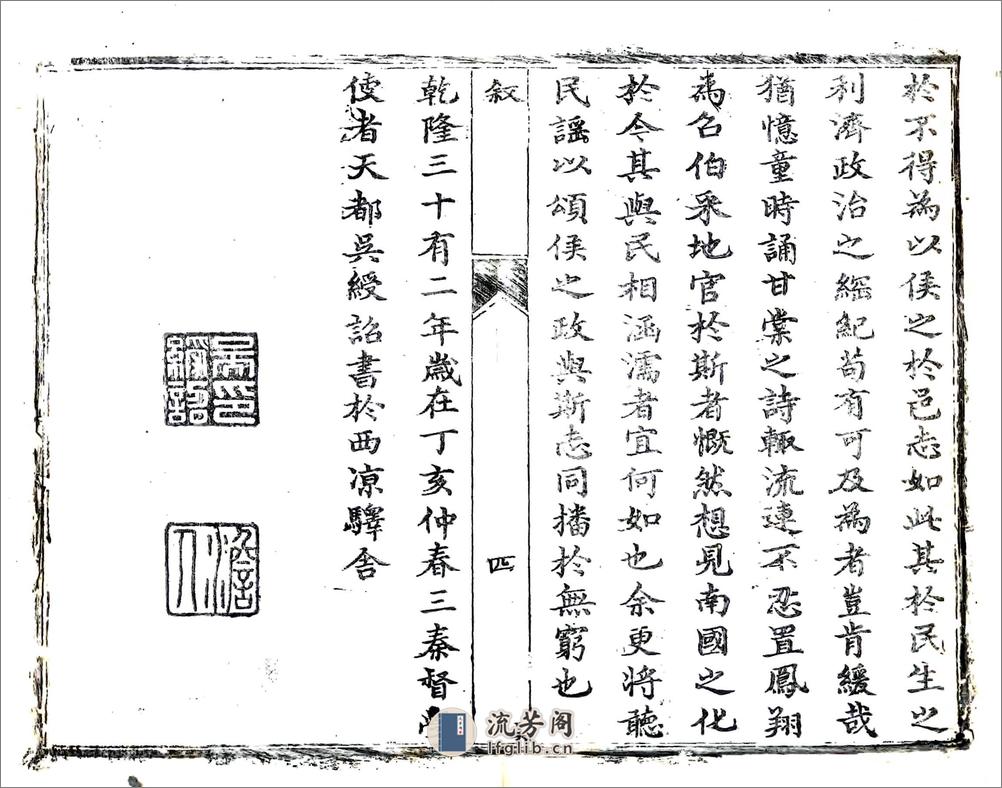 於不得為以侯之於邑志如此其於民生之
利濟政治之綱紀苟有可及為者豈肯緩哉
猶憶童時誦甘棠之詩輒流連不忍置鳳翔
為召伯采地官於斯者慨然想見南國之化
於今其與民相涵濡者宜何如也余更將聽
民謡以頌侯之政與斯志同播於無窮也
叙
四
乾隆三十有二年歲在丁亥仲春三秦督
使者天都吳綬詔書於西凉驛舍
吳印綬詔
澹人
流芳阁
lfglib.cn